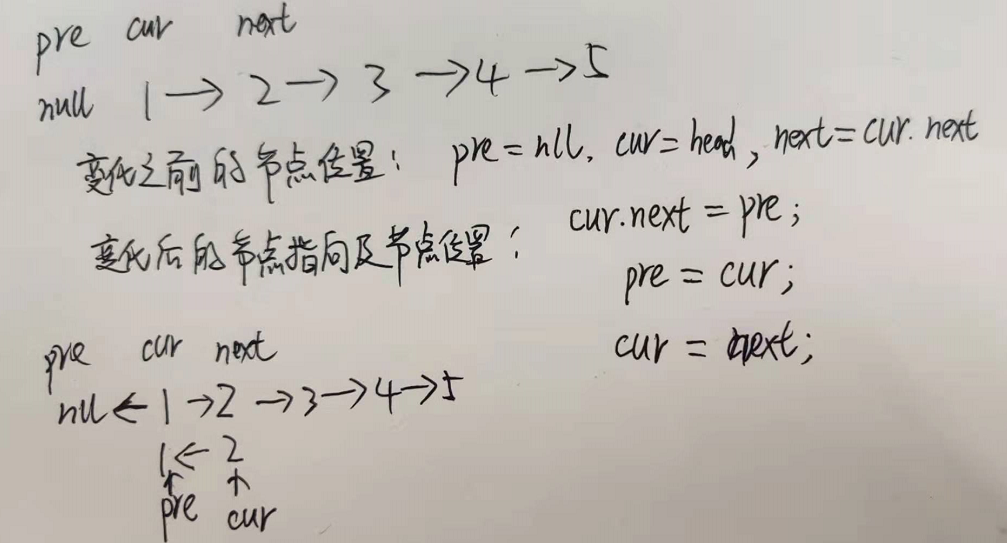 pre cur next
null 1 → 2 → 3 → 4 → 5
变化之前的节点位置： pre = nll, cur = head, next = cur.next
变化后的节点指向及节点位置： cur.next = pre;
pre = cur;
cur = next;
pre cur next
nll ← 1 → 2 → 3 → 4 → 5
1 ← 2
↑ ↑
pre cur